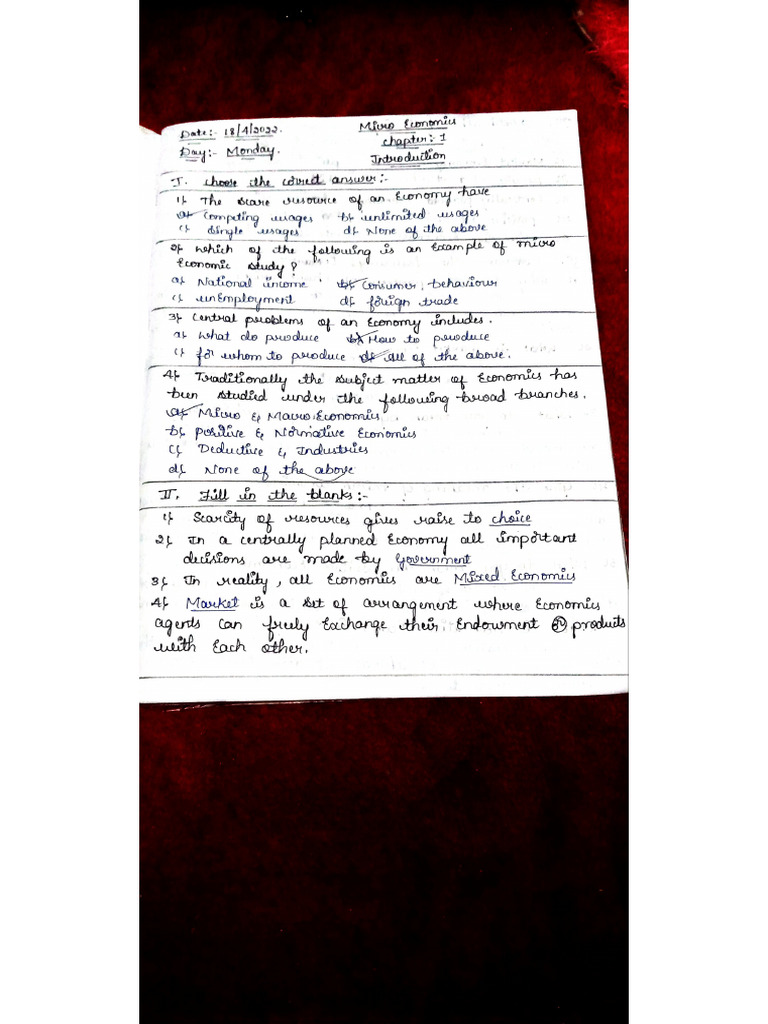 Date:- 18/4/2022.
Micro Economics
Chapter:- 1
Day:- Monday.
Introduction
I. choose the correct answer:-
1) The scare resource of an Economy have
a) Competing usages b) unlimited usages
c) Single usages d) None of the above
2) which of the following is an Example of micro
Economic study?
a) National income b) Consumer behaviour
c) unEmployment d) foreign trade
3) Central problems of an Economy includes.
a) what do produce b) How to produce
c) for whom to produce d) All of the above.
4) Traditionally the subject matter of Economics has
been studied under the following broad branches.
a) Micro & Macro Economics
b) positive & Normative Economics
c) Deductive & Industries
d) None of the above
II. Fill in the blanks:-
1) Scarcity of resources gives raise to choice
2) In a centrally planned Economy all important
decisions are made by Government
3) In reality, all Economies are Mixed Economics
4) Market is a set of arrangement where Economics
agents can freely Exchange their Endowment or products
with Each other.